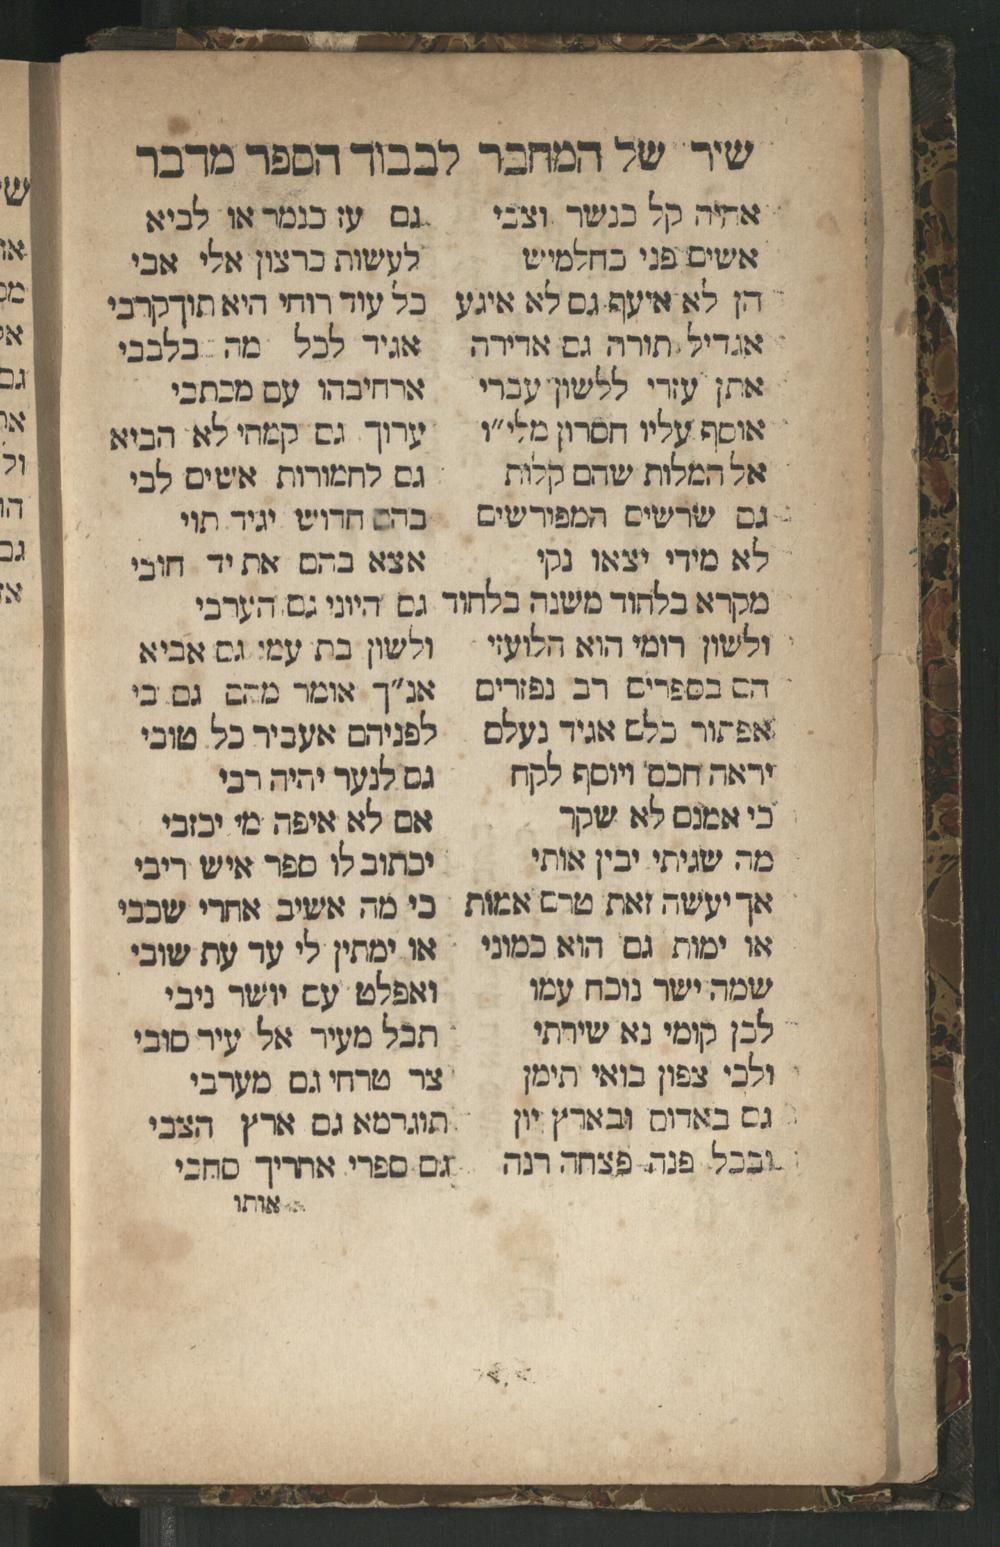 שיר של המחבר לכבוד הספר מדבר
אהיה קל כנשר וצבי גם עז כנמר או לביא
אשים פני כחלמיש לעשות כרצון אלי אבי
הן לא איעף גם לא איגע כל עוד רוחי היא תוך קרבי
אגדיל תורה גם אדירה אגיד לכל מה בלבבי
אתן עזרי ללשון עברי ארחיבהו עם מכתבי
אוסף עליו חסרון מלי״ו ערוך גם קמחי לא הביא
אל המלות שהם קלות גם לחמורות אשים לבי
גם שרשים המפורשים בהם חדוש יגיד תוי
לא מידי יצאו נקי אצא בהם את יד חובי
מקרא בלחוד משנה בלחוד גם היוני גם הערבי
ולשון רומי הוא הלועזי ולשון בת עמי גם אביא
הם בספרים רב נפזרים אנ״ך אומר מהם גם בי
אפתור כלם אגיד נעלם לפניהם אעביר כל טובי
יראה חכם ויוסף לקח גם לנער יהיה רבי
כי אמנם לא שקר אם לא איפה מי יכזבי
מה שגיתי יבין אותי יכתוב לו ספר איש ריבי
אך יעשה זאת טרם אמות כי מה אשיב אחרי שכבי
או ימות גם הוא כמוני או ימתין לי עד עת שובי
שמה ישר נוכח עמו ואפלט עם יושר ניבי
לכן קומי נא שירתי תבל מעיר אל עיר סובי
ולכי צפון בואי תימן צר טרחי גם מערבי
גם באדום ובארץ יון תוגרמא גם ארץ הצבי
ובכל פנה פצחה רנה גם ספרי אחריך סחבי
אותו